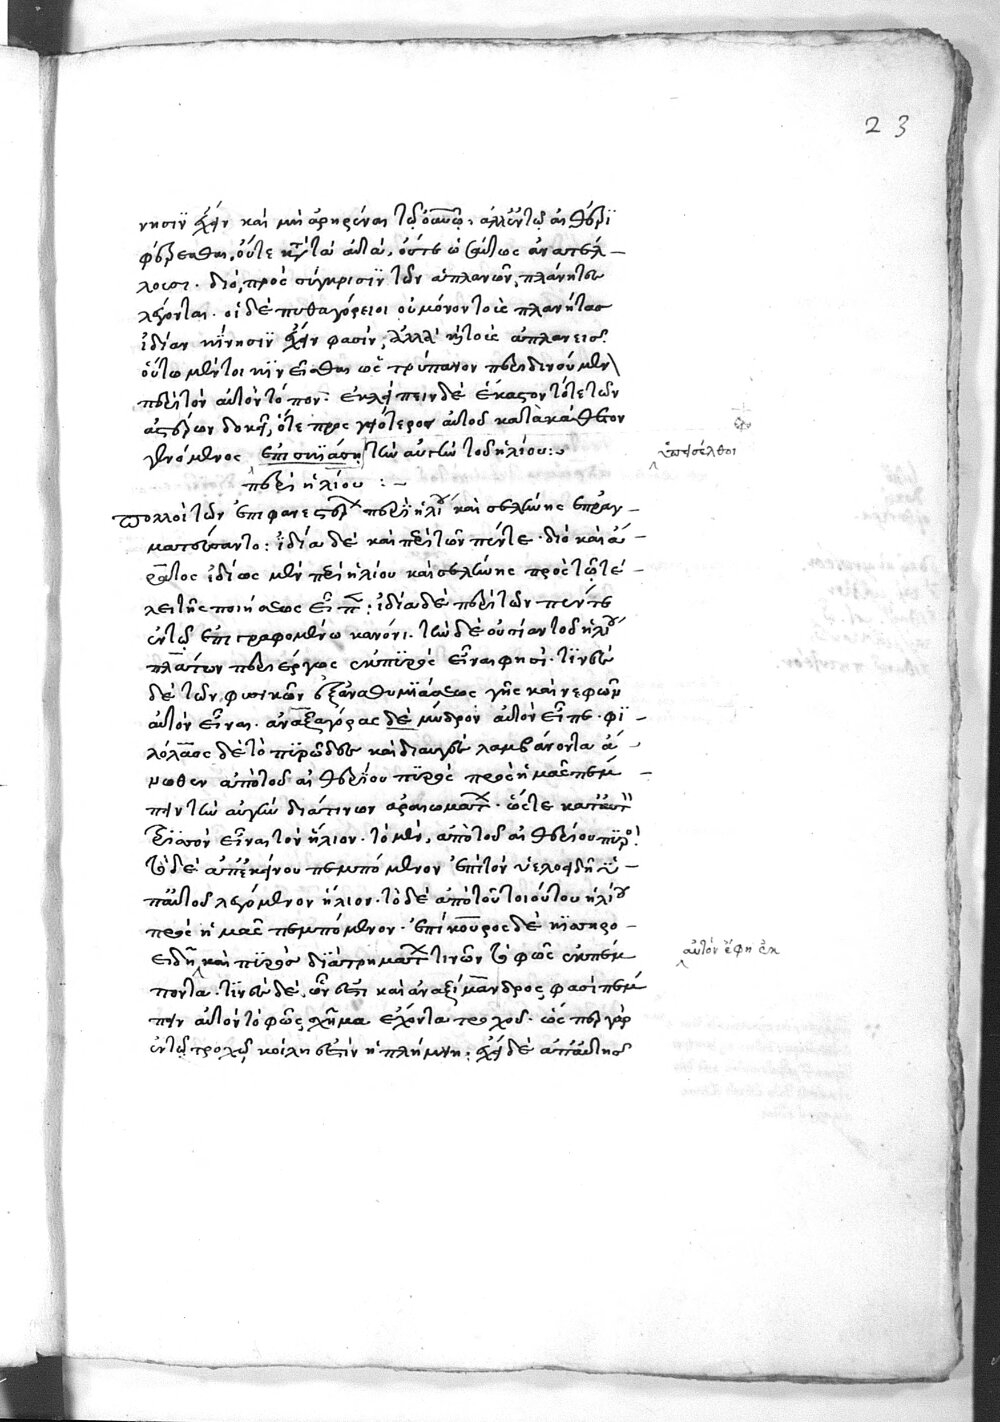 23
νησιν ἔχειν καὶ μὴ ἀρηρέναι τῷ οὐρανῷ, ἀλλ' ἐν τῷ αἰθέρι
φέρεσθαι, οὔτε κατὰ τὰ αὐτὰ, οὔτε ὡσαύτως ἀνατέλ –
λουσι. διὸ, πρὸς σύγκρισιν τῶν ἀπλανῶν, πλάνητες
λέγονται. οἱ δὲ πυθαγόρειοι οὐ μόνον τοὺς πλανήτας
ἰδίαν κίνησιν ἔχειν φασὶν, ἀλλὰ καὶ τοὺς ἀπλανεῖς.
οὕτω μέντοι κινεῖσθαι ὡς τρύπανον περιδινούμεν
περὶ τὸν αὐτὸν τόπον. ἐκλείπειν δὲ ἕκαστον τότε τῶν
ἀστέρων δοκεῖ, ὅτε προσγειότερος αὐτοῦ κατὰ κάθετον
γενόμενος ἐπισκιάσῃ τῶν αὐγῶν τοῦ ἡλίου :~
ὑπεισέλθοι
περὶ ἡλίου : –
Πολλοὶ τῶν ἐπιφανεστέρων περὶ ἡλίου καὶ σελήνης ἐπραγ –
ματεύσαντο : ἰδίᾳ δὲ καὶ περὶ τῶν πέντε. διὸ καὶ ἄ –
ρατος ἰδίως μὲν περὶ ἡλίου καὶ σελήνης πρὸς τῷ τέ –
λει τῆς ποιήσεως εἶπε : ἰδίᾳ δὲ περὶ τῶν πέντε
ἐν τῷ ἐπιγραφομένῳ κανόνι. τὴν δὲ οὐσίαν τοῦ ἡλίου
πλάτων περιέργως ἐκ πυρὸς εἶναι φησί. τινὲς
δὲ τῶν φυσικῶν ἐξ ἀναθυμιάσεως γῆς καὶ νεφῶν
αὐτὸν εἶναι. ἀναξαγόρας δὲ μύδρον αὐτὸν εἶπε. φι –
λόλαος δὲ τὸ πυρῶδες καὶ διαυγὲς λαμβάνοντα ἄ –
νωθεν ἀπὸ τοῦ αἰθερίου πυρὸς πρὸς ἡμᾶς πέμ –
πειν τὴν αὐγὴν διά τινων ἀραιωμάτων. ὥστε κατ' αὐτὸν
τρισσὸν εἶναι τὸν ἥλιον. τὸ μὲν, ἀπὸ τοῦ αἰθερίου πυρός.
τὸ δὲ ἀπ' ἐκείνου πεμπόμενον ἐπὶ τὸν ὑελοειδῆ ὑ –
π' αὐτοῦ λεγόμενον ἥλιον. τὸ δὲ ἀπὸ τοῦ τοιούτου ἡλίου
πρὸς ἡμᾶς πεμπόμενον. ἐπίκουρος δὲ κισηρο –
ειδῆ καὶ πυρὸς διὰ τρημάτων τινῶν τὸ φῶς ἐκπέμ
αὐτὸν ἔφη ἐκ
ποντα. τινὲς δὲ, ὧν ἐστι καὶ ἀναξίμανδρος, φασὶ πέμ
πειν αὐτὸν τὸ φῶς, σχῆμα ἔχοντα τροχοῦ. ὥσπερ γὰρ
ἐν τῷ τροχῷ κοίλη ἐστὶν ἡ πλήμνη, ἔχει δὲ ἀπ' αὐτῆς